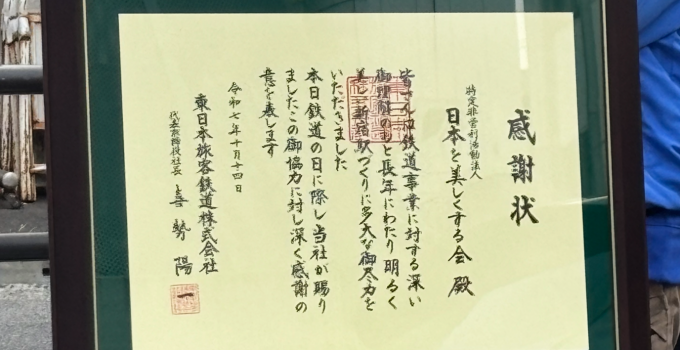 感謝状
特定非営利活動法人
日本を美しくする会 殿
皆さんは鉄道事業に対する深い
御理解のもと長年にわたり明るく
美しい新宿駅づくりに多大な御尽力を
いただきました
本日鉄道の日に際し当社が賜り
ましたこの御協力に対し深く感謝の
意を表します
令和七年十月十四日
東日本旅客鉄道株式会社
代表取締役社長 喜㔟陽一